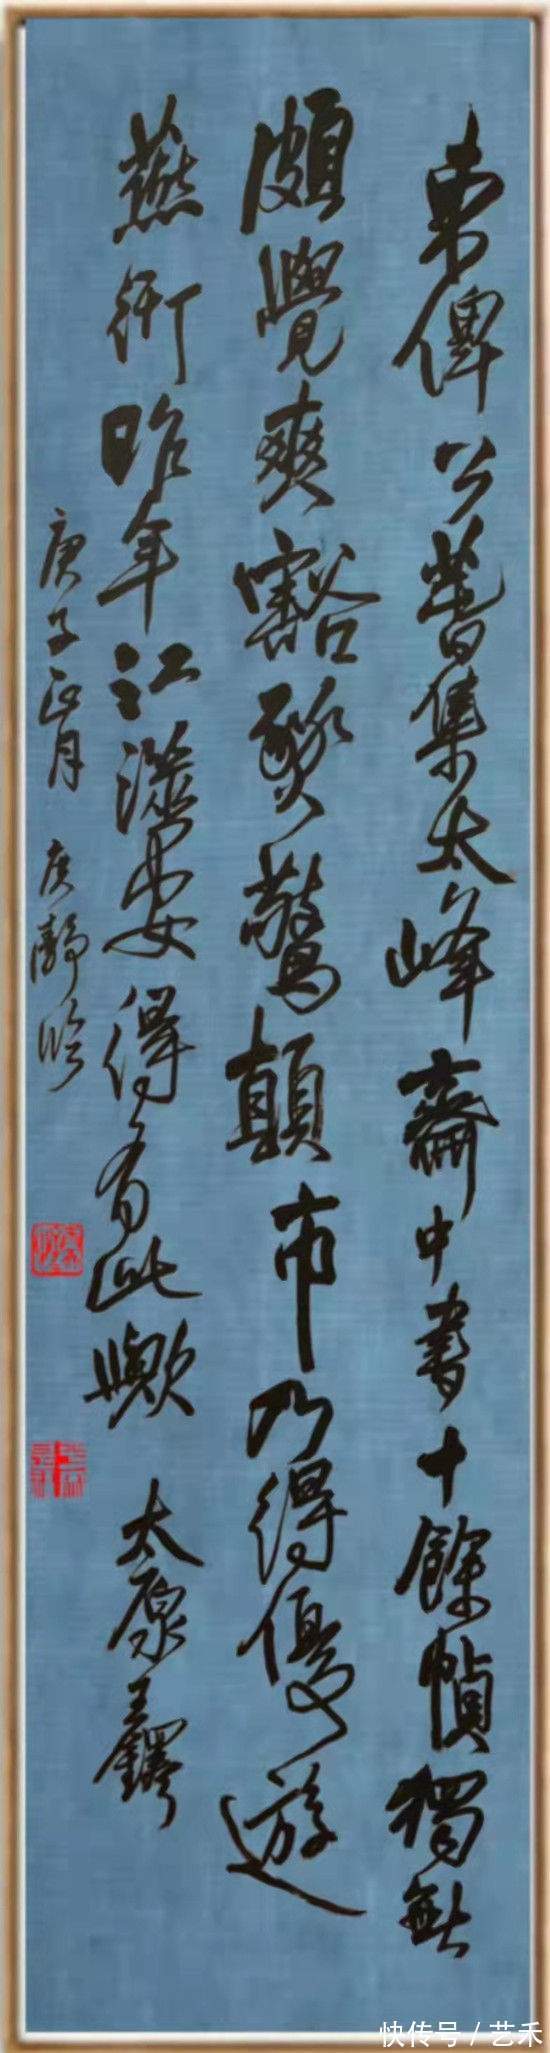 東俾公耆集太峰齋中書十餘幀獨無
頗覺爽豁燹驚顛市乃得優遊
燕衎昨年江滸安得有此歟 太原王鐸
庚子正月
快传号 / 艺禾